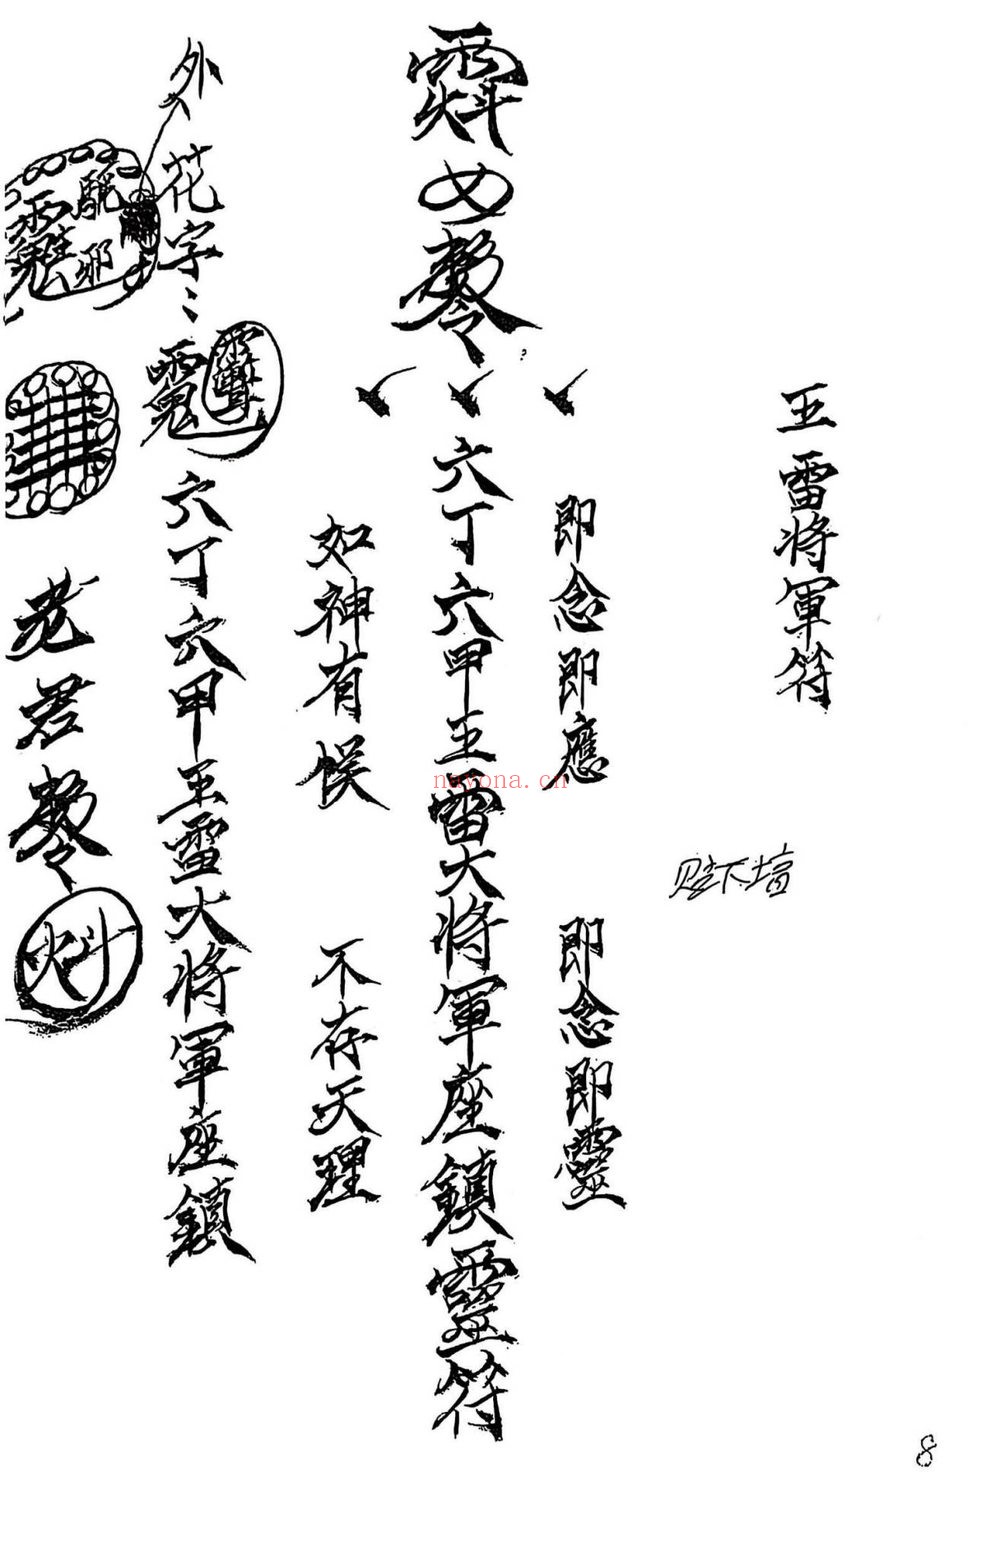 王雷將軍符
貼下壇
即念即應
即念即靈
六丁六甲王雷大將軍座鎮靈符
如神有候
不存天理
外
花字
六丁六甲王雷大將軍座鎮
驅邪
老君
nayona.cn
8